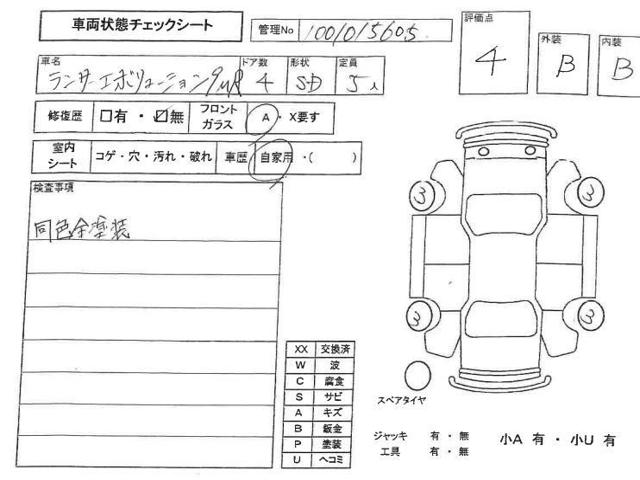 車両状態チェックシート
管理No 1001015605
評価点 4
外装 B
内装 B
車名 ランサーエボリューション9MR
ドア数 4
形状 SD
定員 5人
修復歴 □有・☑無
フロントガラス A・X要す
室内シート コゲ・穴・汚れ・破れ
車歴 自家用・( )
検査事項
同色全塗装
3 3
3 3
XX 交換済
W 波
C 腐食
S サビ
A キズ
B 鈑金
P 塗装
U ヘコミ
スペアタイヤ
ジャッキ 有・無
工具 有・無
小A 有・小U 有